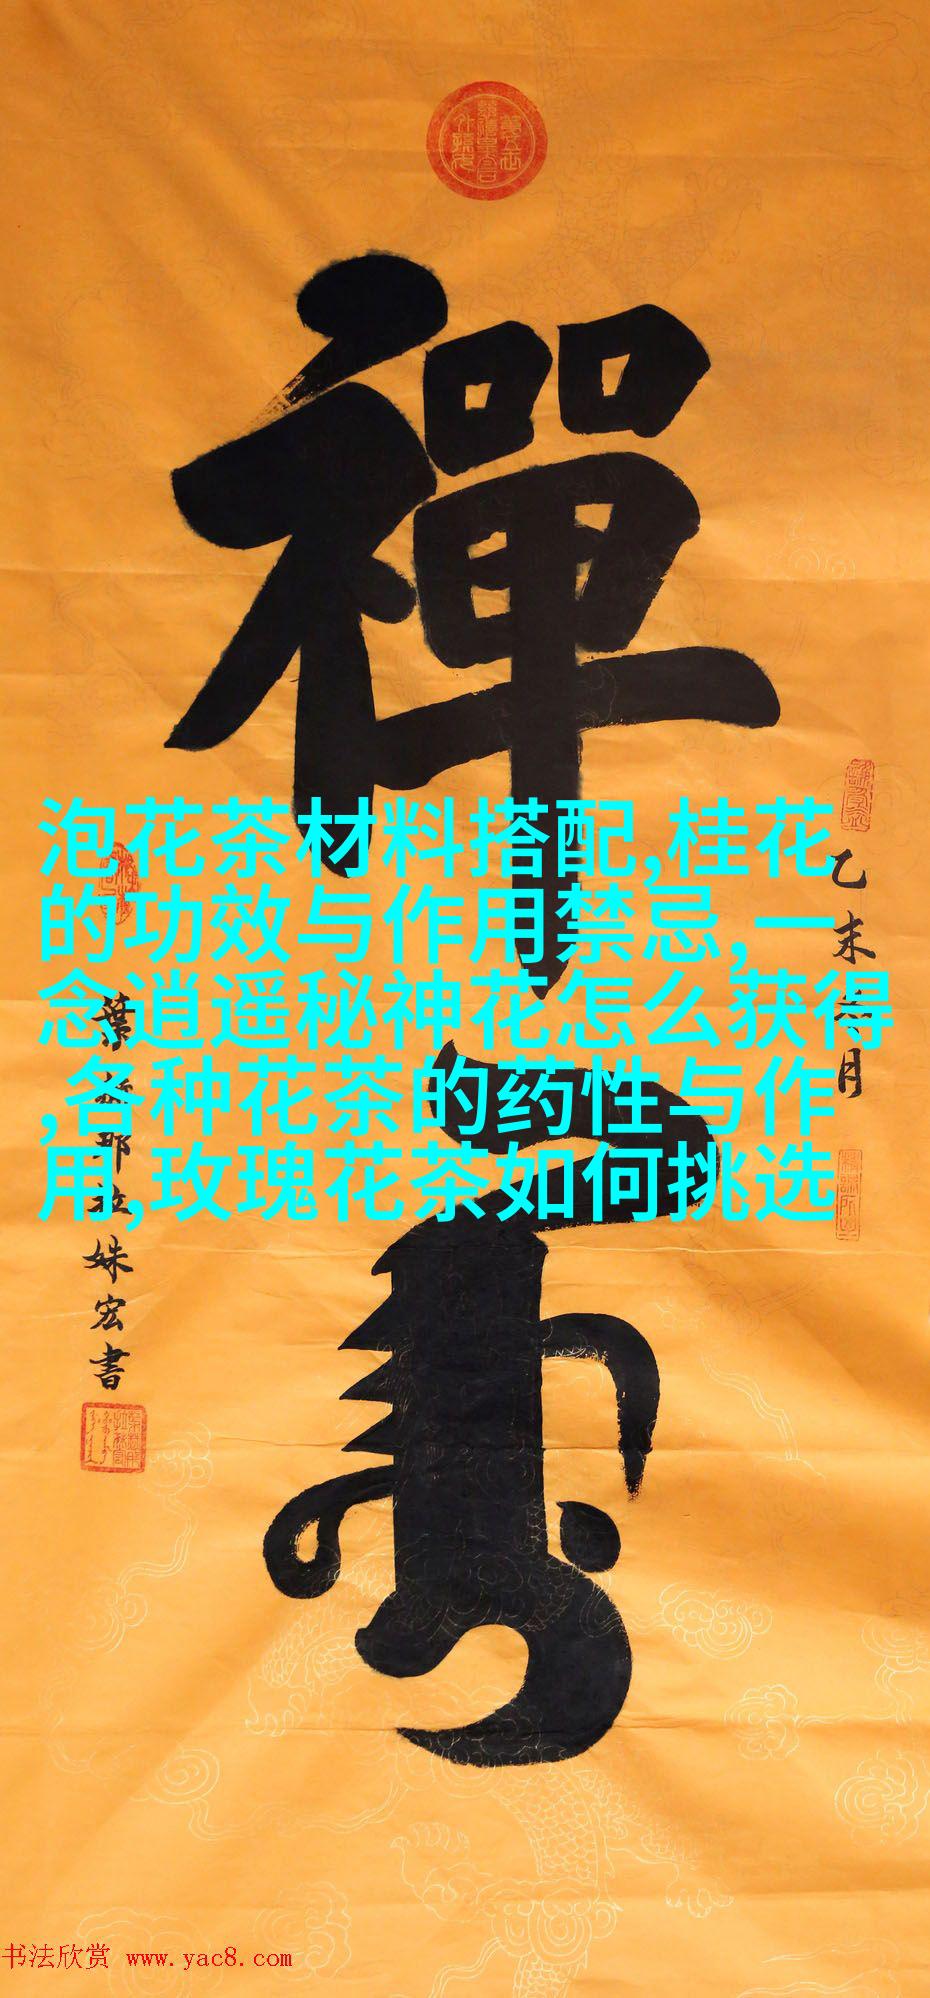 禪
泡花茶材料搭配,桂花
的功效与作用禁忌,一
念逍遥秘神花怎么获得
,各种花茶的药性与作
用,玫瑰花茶如何挑选
乙未
月
葉赫那拉姝宏書
书法欣赏 www.yac8.com